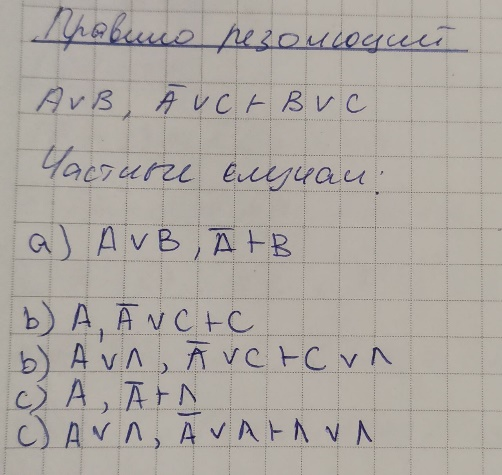 Правило резолюций
A∨B, Ā∨C⊢B∨C
Частные случаи:
a) A∨B, Ā⊢B
b) A, Ā∨C⊢C
b) A∨Λ, Ā∨C⊢C∨Λ
c) A, Ā⊢Λ
c) A∨Λ, Ā∨Λ⊢Λ∨Λ